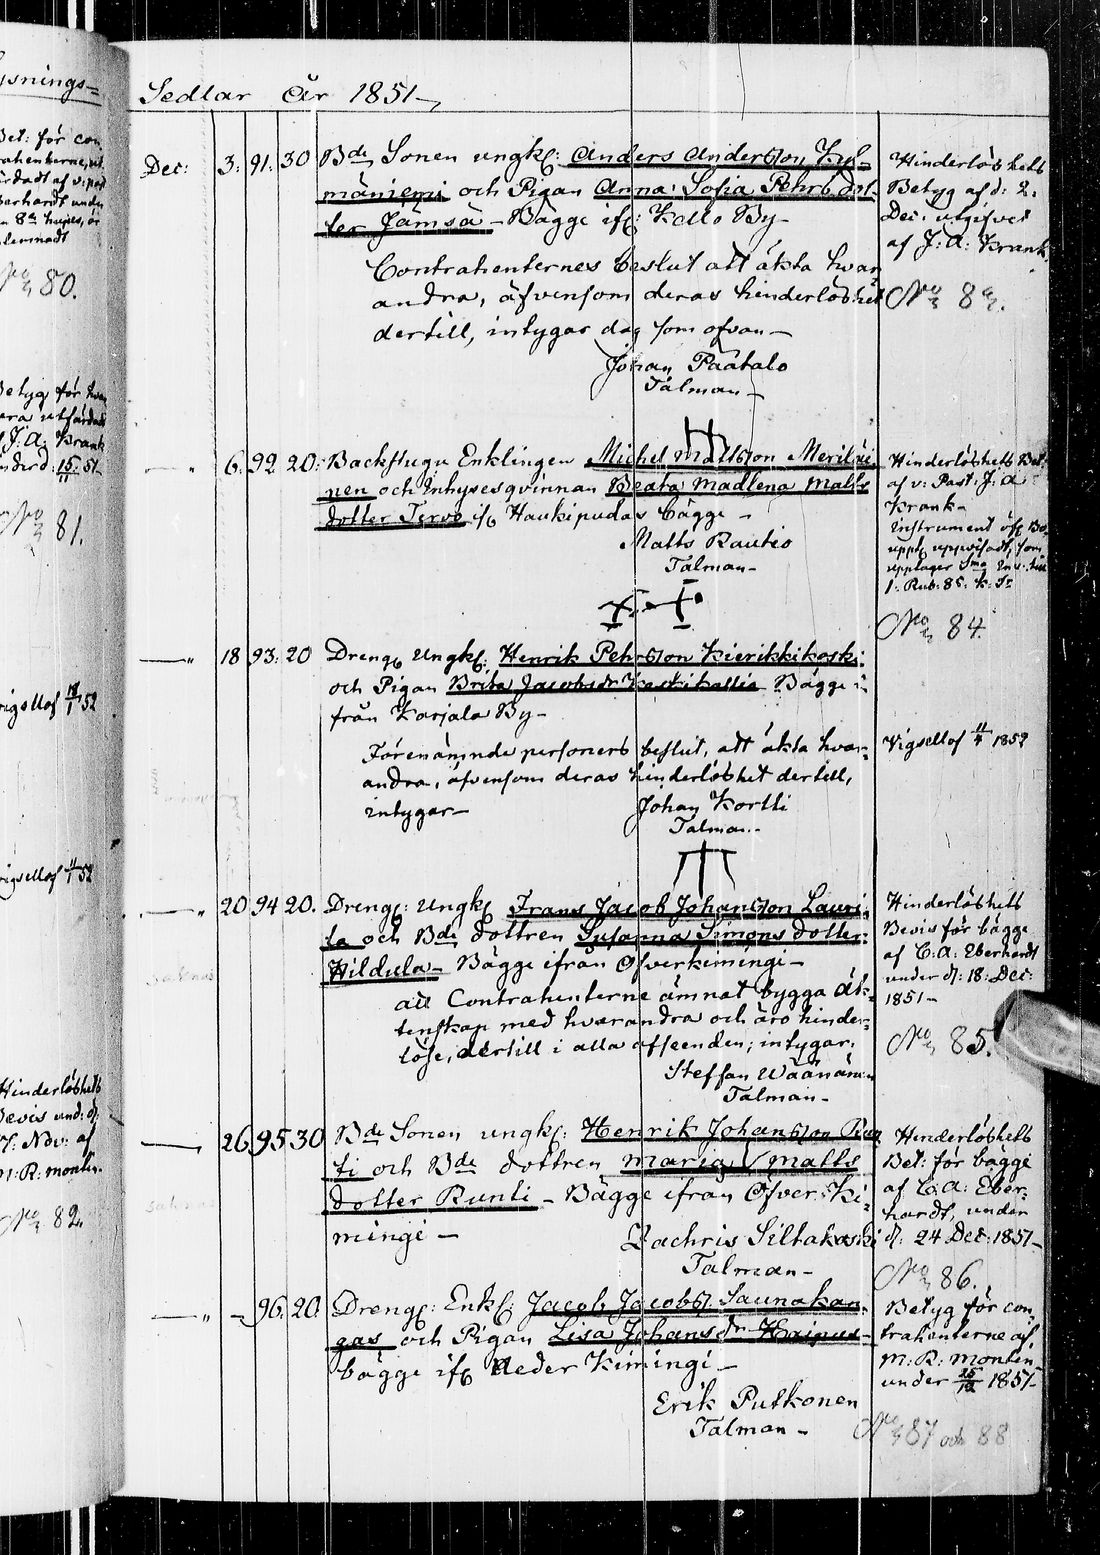 Sedlar år 1851
Dec: 3. 91. 30 Bde Sonen ungk: Anders Andersson Kyl=
mäniemi och Pigan Anna Sofia Pehrs dot=
ter Jämsä - Bägge if: Kello By -
Contrahenternes beslut att äkta hvar
andra, äfvensom deras hinderlöshet
dertill, intygar dag som ofvan -
Johan Päätalo
Talman -
Hinderlöshets
Betyg af d: 2:
Dec: utgifvet
af J: A: Krank
No 83.
— " 6. 92 20: Backstugu Enklingen Michel Mattsson Meriläi
nen och Inhysesqvinnan Beata Madlena Matts
dotter Tervo if. Haukipudas bägge -
Matts Rautio
Talman -
Hinderlöshets Bet:
af v: Past: J: A:
Krank -
Instrument öfv. Bo
uppt. uppvisadt, som
upptager
1: Rub: 85: k: Sr
No 84.
— " 18 93. 20 Dreng. Ungk: Henrik Pehrsson Kierikkikoski
och Pigan Brita Jacobsdr Keskikallio Bägge i
från Karjala By -
Förenämnde personers beslut, att äkta hvar=
andra, äfvensom deras hinderlöshet dertill,
intygar -
Johan Kortti
Talman -
Vigsellof 11/4 1852
— " 20 94 20. Dreng: Ungk Frans Jacob Johansson Lauri=
la och Bde dottren Susanna Simons dotter
Hildula - Bägge ifrån Öfverkimingi -
att Contrahenterne ämnat bygga äk=
tenskap med hvarandra och äro hinder=
löse, dertill i alla afseenden; intygar,
Steffan Wäänänen
Talman -
Hinderlöshets
Bevis för bägge
af C: A: Eberhardt
under d: 18: Dec:
1851 -
No 85.
— " 26 95 30 Bde Sonen ungk: Henrik Johansson Run
ti och Bde dottren Maria Matts
dotter Runti - Bägge ifrån Öfver Ki=
mingi -
Zachris Siltakoski
Talman -
Hinderlöshets
Bet: för bägge
af C: A: Eber=
hardt, under
d: 24 Dec: 1851 -
No 86.
— " - 96. 20. Dreng: Enk: Jacob Jacobss. Saunakan
gas och Pigan Lisa Johansdr Heinus -
bägge if. Neder Kimingi -
Erik Putkonen
Talman -
Betyg för con=
trahenterne af
M: R: Montin
under 25/12 1851 -
No 87 och 88